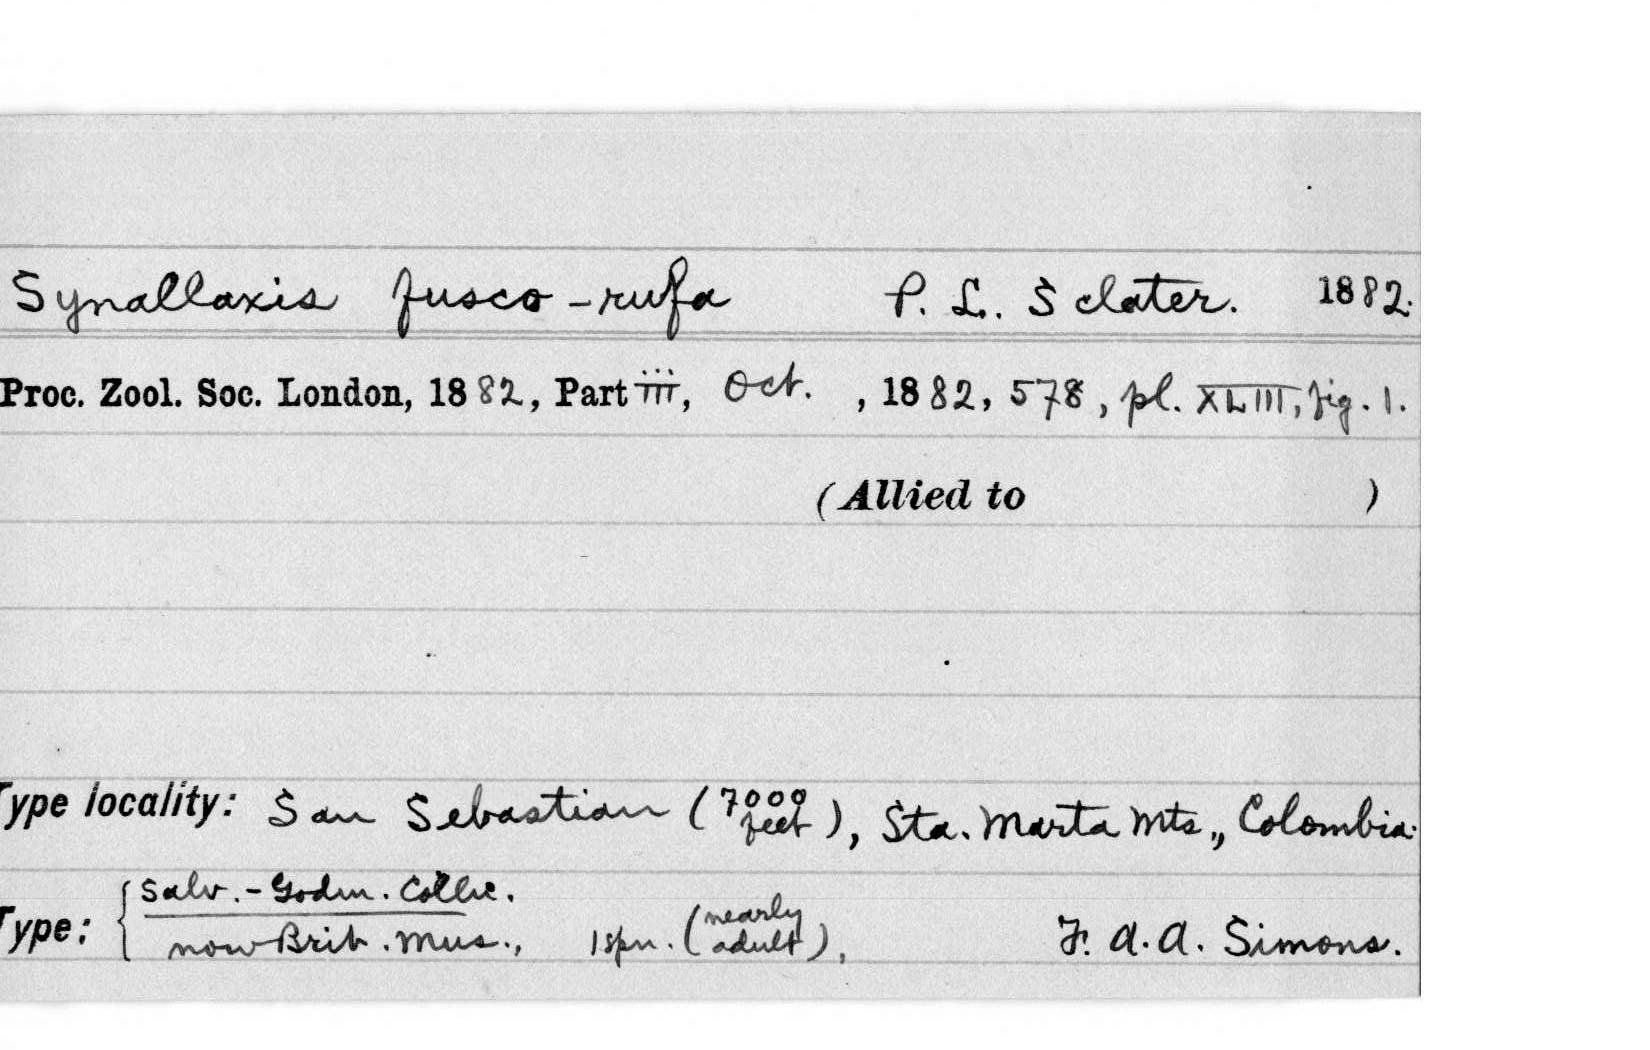 Synallaxis fusco-rufa P. L. Sclater. 1882.
Proc. Zool. Soc. London, 1882, Part iii, Oct. , 1882, 578, pl. XLIII, fig. 1.
(Allied to )
Type locality: San Sebastian (7000 feet), Sta. Marta Mts., Colombia.
Type: { Salv.-Godm. Collec.
now Brit. Mus., 1 spn. (nearly adult), F. A. A. Simons.